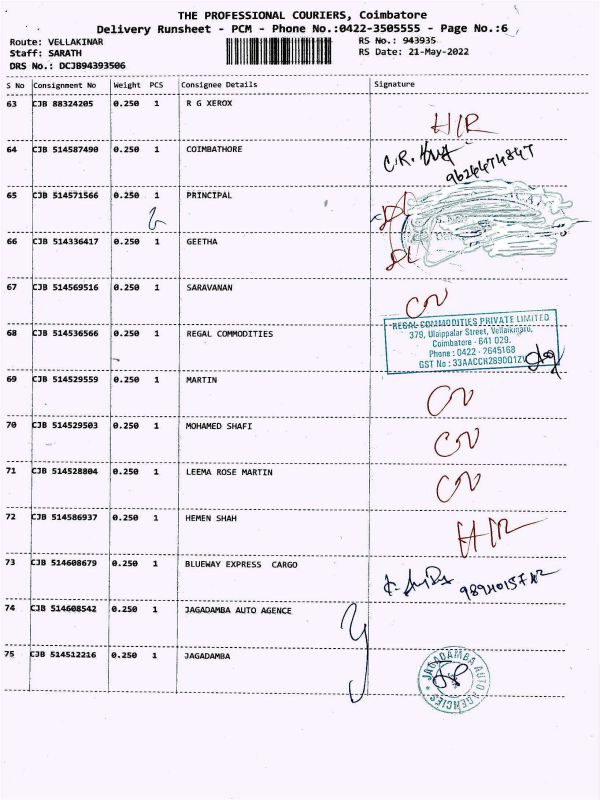 THE PROFESSIONAL COURIERS, Coimbatore
Delivery Runsheet - PCM - Phone No.:0422-3505555 - Page No.:6
Route: VELLAKINAR
RS No.: 943935
Staff: SARATH
RS Date: 21-May-2022
DRS No.: DCJB94393506
S No Consignment No Weight PCS Consignee Details Signature
63 CJB 88324205 0.250 1 R G XEROX
H/R
64 CJB 514587490 0.250 1 COIMBATHORE
C.R.
65 CJB 514571566 0.250 1 PRINCIPAL
66 CJB 514336417 0.250 1 GEETHA
67 CJB 514569516 0.250 1 SARAVANAN
REGAL COMMODITIES PRIVATE LIMITED
379, Ulaippalar Street, Vellaikinaru,
68 CJB 514536566 0.250 1 REGAL COMMODITIES
Coimbatore - 641 029.
Phone : 0422 - 2645168
GST No : 33AACCR2890Q1ZV
69 CJB 514529559 0.250 1 MARTIN
70 CJB 514529503 0.250 1 MOHAMED SHAFI
71 CJB 514528804 0.250 1 LEEMA ROSE MARTIN
72 CJB 514586937 0.250 1 HEMEN SHAH
H/R
73 CJB 514608679 0.250 1 BLUEWAY EXPRESS CARGO
74 CJB 514608542 0.250 1 JAGADAMBA AUTO AGENCE
75 CJB 514512216 0.250 1 JAGADAMBA
JAGADAMBA AUTO AGENCIES